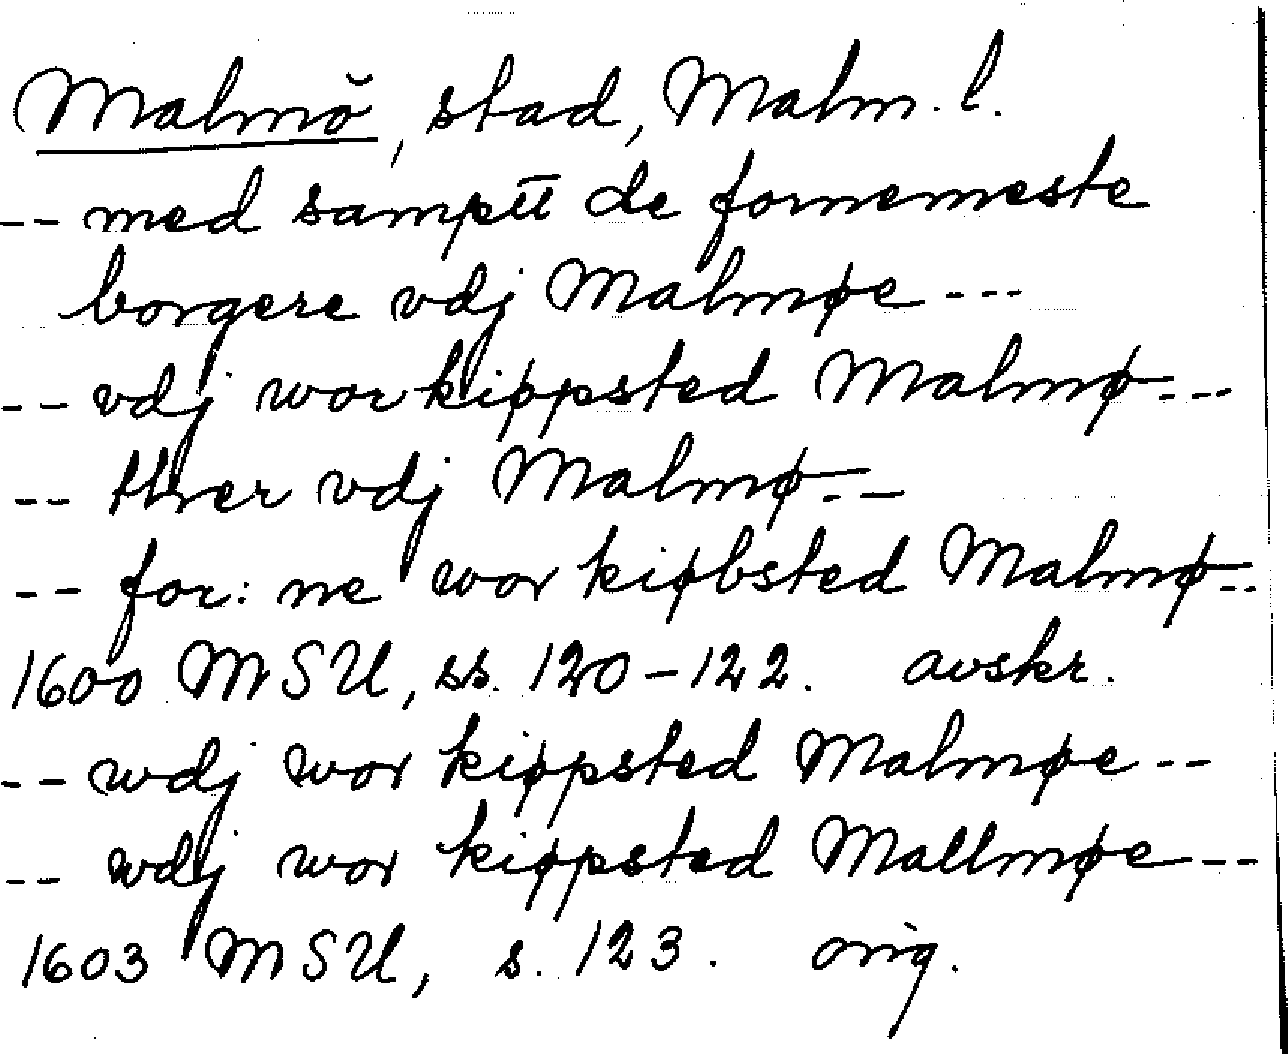 Malmö, stad, Malm. l.
-- med samptt de fornemeste
borgere vdj Malmøe ---
-- vdj wor kiøpsted Malmø ---
-- thver vdj Malmø --
-- for: ne wor kiøbsted Malmø --
1600 MSU, ss. 120-122. avskr.
-- wdj wor kiøpsted Malmøe --
-- wdj wor kiøpsted Mallmøe --
1603 MSU, s. 123. orig.